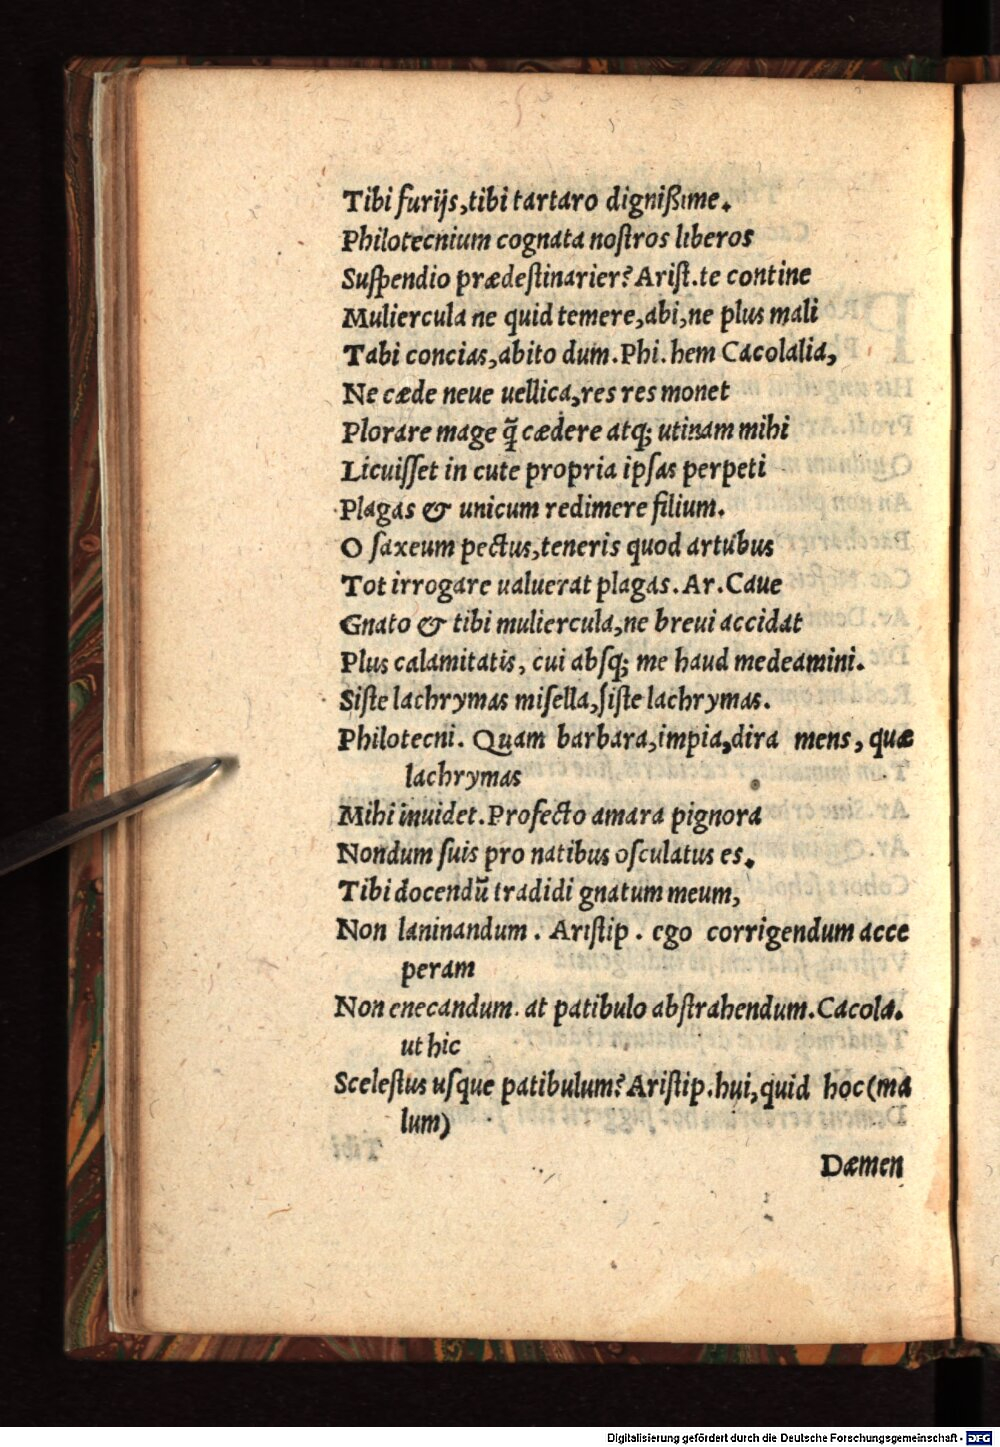 Tibi furijs, tibi tartaro dignißime.
Philotecnium cognata nostros liberos
Suspendio prædestinarier? Arist. te contine
Muliercula ne quid temere, abi, ne plus mali
Tabi concias, abito dum. Phi. hem Cacolalia,
Ne cæde neue uellica, res res monet
Plorare mage q̃ cædere atq; utinam mihi
Licuisset in cute propria ipsas perpeti
Plagas & unicum redimere filium.
O saxeum pectus, teneris quod artubus
Tot irrogare ualuerat plagas. Ar. Caue
Gnato & tibi muliercula, ne breui accidat
Plus calamitatis, cui absq; me haud medeamini.
Siste lachrymas misella, siste lachrymas.
Philotecni. Quam barbara, impia, dira mens, quæ
lachrymas
Mihi inuidet. Profecto amara pignora
Nondum suis pro natibus osculatus es.
Tibi docendũ tradidi gnatum meum,
Non laninandum. Aristip. ego corrigendum acce
peram
Non enecandum. at patibulo abstrahendum. Cacola.
ut hic
Scelestus usque patibulum? Aristip. hui, quid hoc (ma
lum)
Dæmen
Digitalisierung gefördert durch die Deutsche Forschungsgemeinschaft - DFG